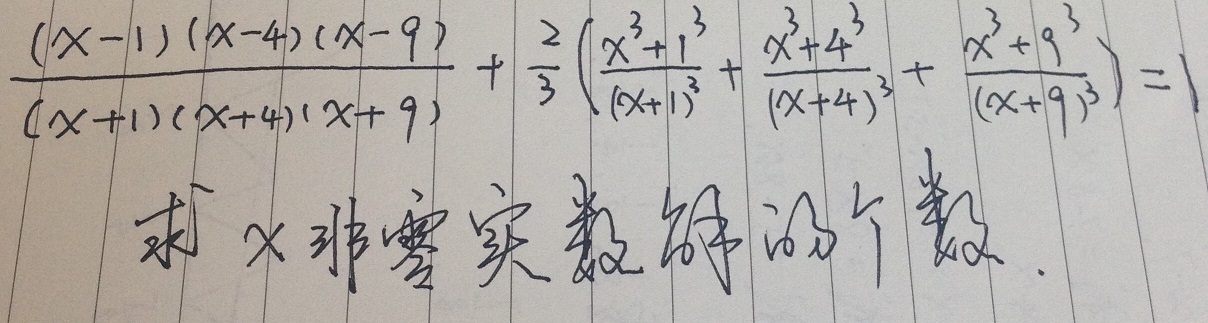 (x-1)(x-4)(x-9)/(x+1)(x+4)(x+9) + 2/3 (x³+1³/(x+1)³ + x³+4³/(x+4)³ + x³+9³/(x+9)³) = 1
求 x 非零实数解的个数.